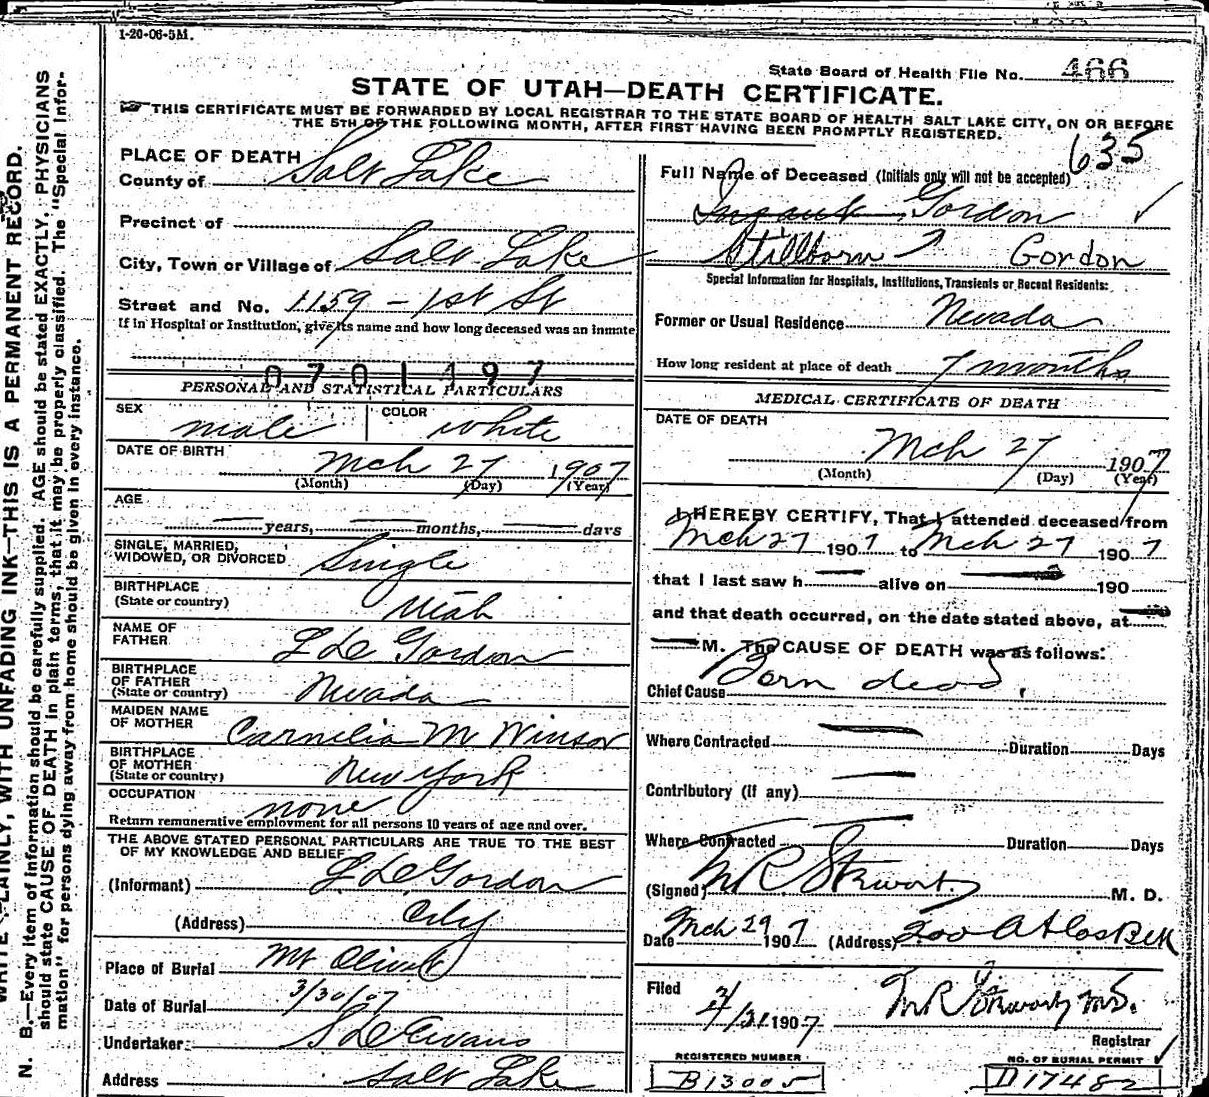 1-20-06-5M.
State Board of Health File No. 466
STATE OF UTAH—DEATH CERTIFICATE.
THIS CERTIFICATE MUST BE FORWARDED BY LOCAL REGISTRAR TO THE STATE BOARD OF HEALTH SALT LAKE CITY, ON OR BEFORE
THE 5TH OF THE FOLLOWING MONTH, AFTER FIRST HAVING BEEN PROMPTLY REGISTERED.
635
PLACE OF DEATH
County of Salt Lake
Precinct of
City, Town or Village of Salt Lake
Street and No. 1159 - 1st St
If in Hospital or Institution, give its name and how long deceased was an inmate
0701497
PERSONAL AND STATISTICAL PARTICULARS
SEX male COLOR white
DATE OF BIRTH Mch 27 1907
(Month) (Day) (Year)
AGE
— years, — months, — days
SINGLE, MARRIED,
WIDOWED, OR DIVORCED Single
BIRTHPLACE
(State or country) Utah
NAME OF
FATHER Gordon
BIRTHPLACE
OF FATHER
(State or country) Nevada
MAIDEN NAME
OF MOTHER Carnilia M Winsor
BIRTHPLACE
OF MOTHER
(State or country) New York
OCCUPATION none
Return remunerative employment for all persons 10 years of age and over.
THE ABOVE STATED PERSONAL PARTICULARS ARE TRUE TO THE BEST
OF MY KNOWLEDGE AND BELIEF
(Informant) Gordon
(Address) City
Place of Burial Mt Olivet
Date of Burial 3/30/07
Undertaker Evans
Address Salt Lake
Full Name of Deceased (Initials only will not be accepted)
Infant Gordon
Stillborn Gordon
Special Information for Hospitals, Institutions, Transients or Recent Residents:
Former or Usual Residence Nevada
How long resident at place of death 7 months
MEDICAL CERTIFICATE OF DEATH
DATE OF DEATH
Mch 27 1907
(Month) (Day) (Year)
I HEREBY CERTIFY, That I attended deceased from
Mch 27 1907 to Mch 27 1907
that I last saw h — alive on — 190
and that death occurred, on the date stated above, at —
— M. The CAUSE OF DEATH was as follows:
Chief Cause Born dead.
Where Contracted — Duration Days
Contributory (if any) —
Where Contracted — Duration Days
(Signed) M R Stewart M. D.
Date Mch 29 1907 (Address) 200 Atlas Blk
Filed 3/31 1907 M R Stewart M.D.
Registrar
REGISTERED NUMBER
B13005
NO. OF BURIAL PERMIT
D17482
WRITE PLAINLY, WITH UNFADING INK—THIS IS A PERMANENT RECORD.
N. B.—Every item of information should be carefully supplied. AGE should be stated EXACTLY. PHYSICIANS
should state CAUSE OF DEATH in plain terms, that it may be properly classified. The "Special Infor-
mation" for persons dying away from home should be given in every instance.